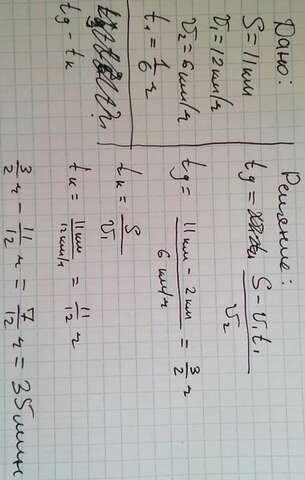 Дано:
S = 11 км
v₁ = 12 км/ч
v₂ = 6 км/ч
t₁ = 1/6 ч
tд - tк
Решение:
tд = (S - v₁t₁)/v₂
tд = (11 км - 2 км)/(6 км/ч) = 3/2 ч
tк = S/v₁
tк = 11 км/12 км/ч = 11/12 ч
3/2 ч - 11/12 ч = 7/12 ч = 35 мин